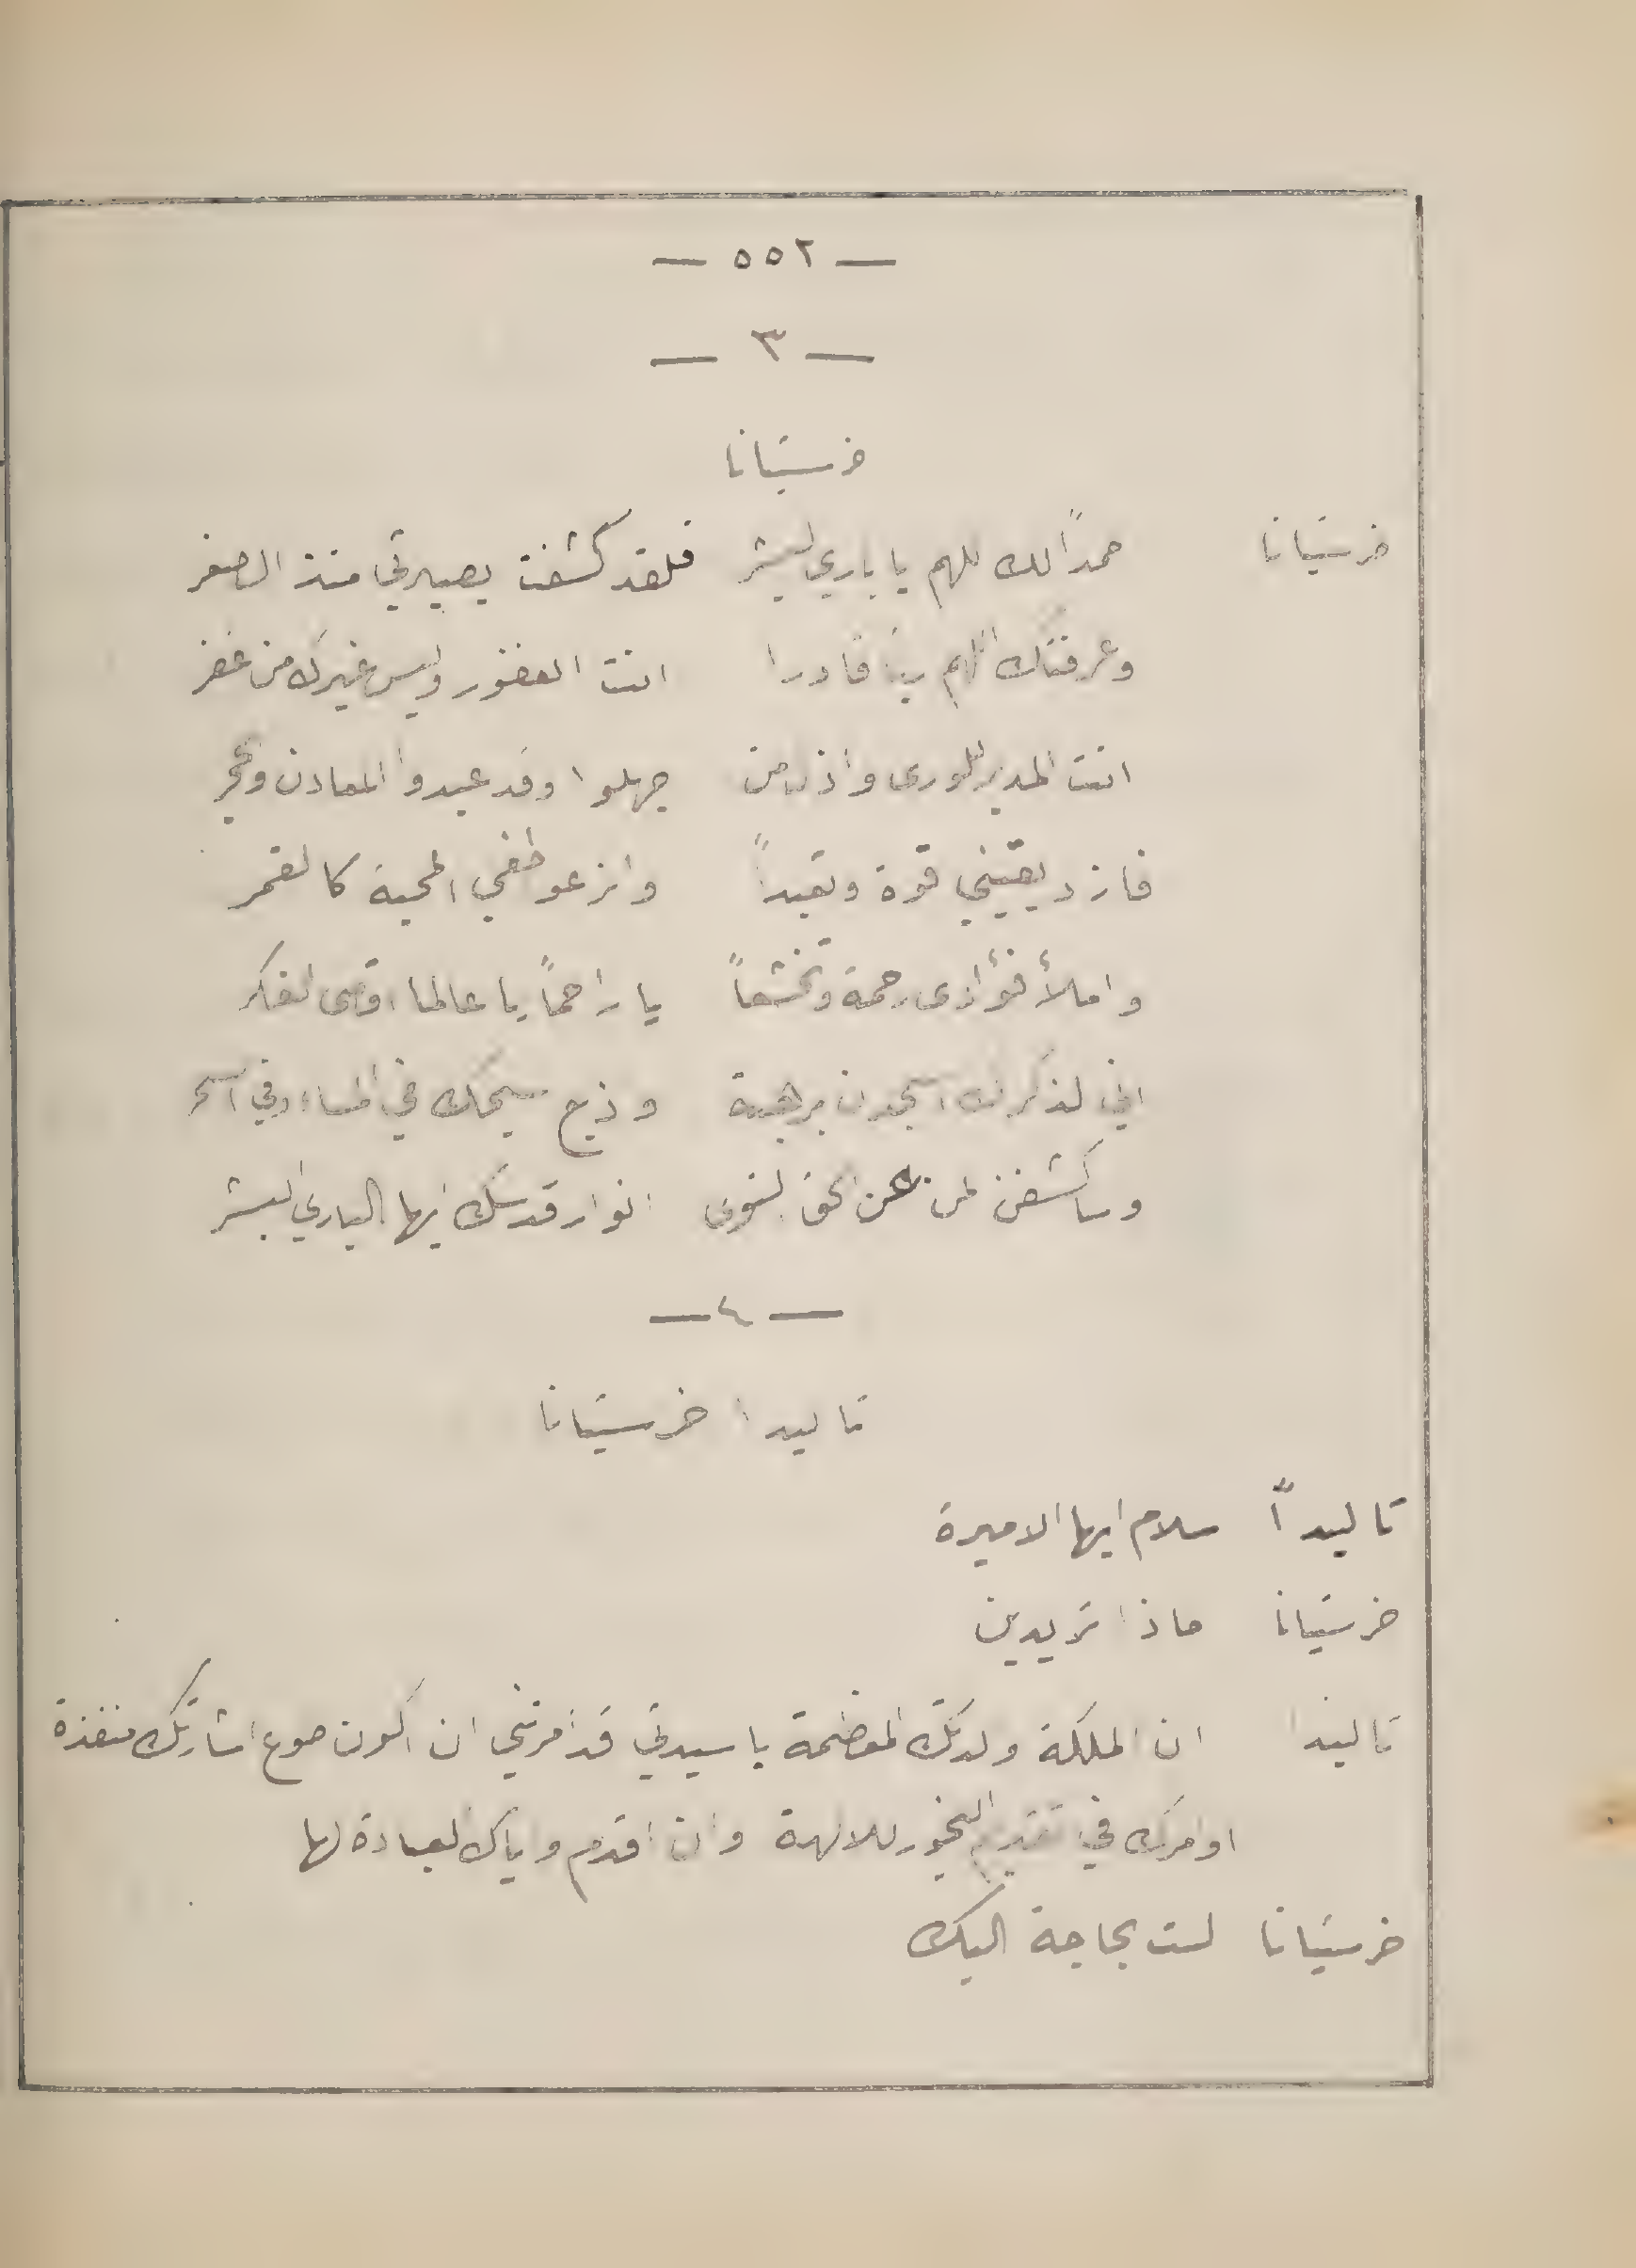 — ٥٥٢ —
— ٣ —
خرستيانا
خرستيانا حمداً لك اللهم يا باري البشر فلقد كشفت بصيرتي منذ الصغر
وعرفتك اللهم رباً قادرا انت الغفور وليس غيرك من غفر
انت المدبر للورى واذل من جهلوا وقد عبدوا المعادن والحجر
فازد يقيني قوة وتعبداً وانر عواطفي المحبة كالقمر
واملأ فؤادي رحمة وتخشعاً يا راحماً يا عالما اقصى الفكر
اني لذكرك اسجدن برهبة وذبح مسيحك في المساء وفي السحر
وساكشفن لمن عن الحق انوار قدسك ايها الباري البشر
— ٤ —
تاليدا خرستيانا
تاليدا سلام ايها الاميرة
خرستيانا ماذا تريدين
تاليدا ان الملكة ولدتك المعظمة يا سيدتي قد امرتني ان اكون طوع اشارتك منفذة
اوامرك في تقديم البخور للالهة وان اقدم واياك العبادة لها
خرستيانا لست بحاجة اليك